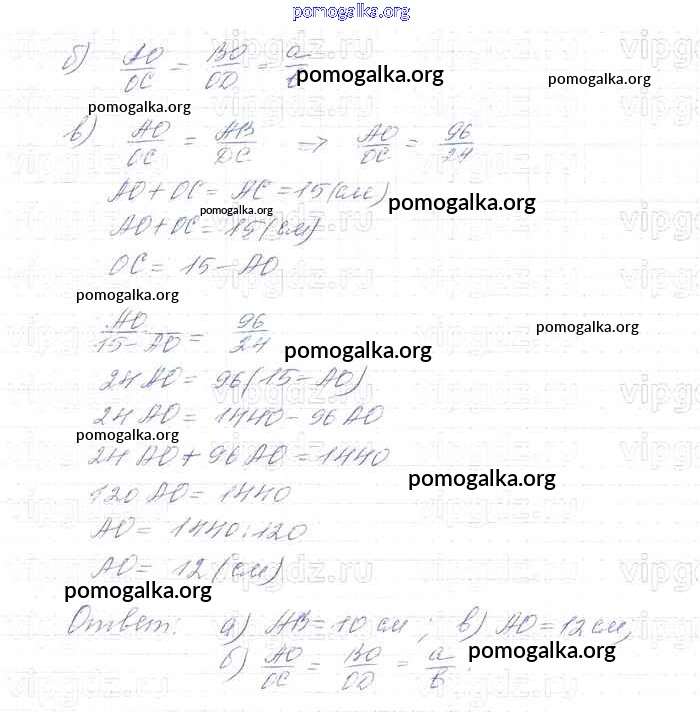 pomogalka.org
б) AO/OC = BO/OD = a/b
pomogalka.org
pomogalka.org
pomogalka.org
в) AO/OC = AB/DC => AO/OC = 96/24
AO + OC = AC = 15 (см)
pomogalka.org
pomogalka.org
AO + OC = 15 (см)
OC = 15 - AO
pomogalka.org
AO/15 - AO = 96/24
pomogalka.org
pomogalka.org
24 AO = 96 (15 - AO)
24 AO = 1440 - 96 AO
pomogalka.org
24 AO + 96 AO = 1440
pomogalka.org
120 AO = 1440
AO = 1440 : 120
AO = 12 (см)
pomogalka.org
Ответ: а) AB = 10 см; в) AO = 12 см;
б) AO/OC = BO/OD = a/b.
pomogalka.org
vipgdz.ru